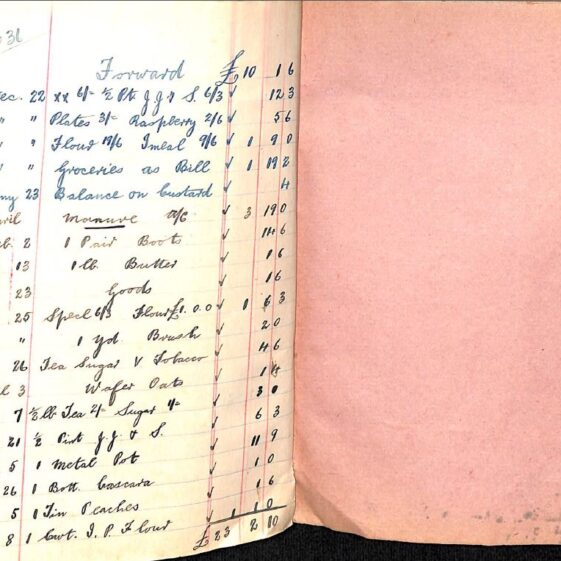 31
Forward £ 10 1 6
ec. 22 xx 6/- ½ Pt. J.J. & S. 6/3 ✓ 12 3
" " Plates 3/- Raspberry 2/6 ✓ 5 6
" " Flour 19/6 Imeal 9/6 ✓ 1 9 0
" " Groceries as Bill ✓ 1 19 2
ny 23 Balance on Custard 4
ril Manure a/c ✓ 3 19 0
b. 2 1 Pair Boots ✓ 14 6
13 1 lb. Butter ✓ 1 6
23 Goods ✓ 1 6
25 Specl 6/3 Flour £1.0.0 ✓ 1 6 3
" 1 yd. Brush ✓ 2 0
26 Tea Sugar & Tobacco ✓ 4 6
l 3 Wafer Oats ✓ 1
7 ½ lb Tea 2/- Sugar 1/- ✓ 3 0
21 ½ Pint J.J. & S. ✓ 6 3
5 1 Metal Pot ✓ 11 9
26 1 Bott. Cascara ✓ 1 0
5 1 Tin Peaches ✓ 1 6
8 1 Cwt. I.P. Flour ✓ 1 1 0
£ 23 2 10